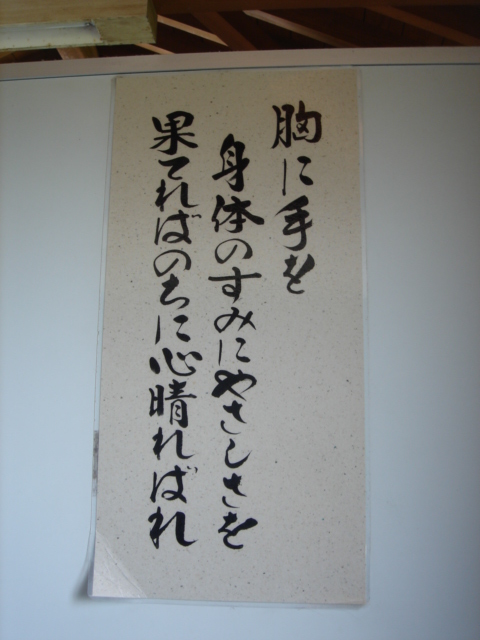 胸に手を
身体のすみにやさしさを
果てればのちに心晴ればれ